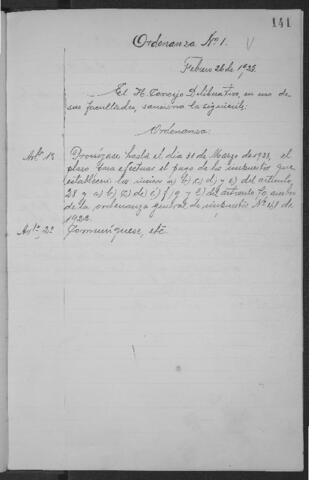 141
Ordenanza Nº 1.
Febrero 26 de 1923.
El H. Concejo Deliberativo, en uso de
sus facultades, sanciona la siguiente:
Ordenanza:
Art. 1º. Prorrógase hasta el día 31 de Marzo de 1923, el
plazo para efectuar el pago de los impuestos que
establecen los incisos a) b) c) d) y e) del artículo
28 y a) b) c) d) e) f) g y
de la ordenanza general de impuestos Nº
1922.
Art. 2º. Comuníquese, etc